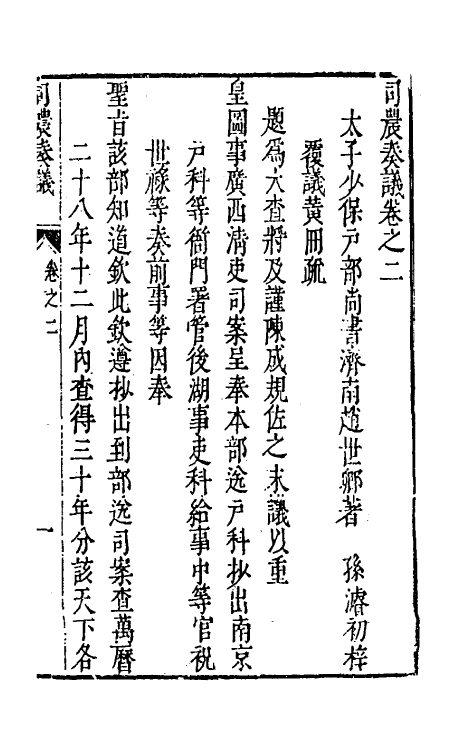 司農奏議卷之二
太子少保戸部尚書濟南趙世卿著　孫濬初梓
覆議黃冊疏
題爲大查將及謹陳成規佐之末議以重
皇圖事廣西清吏司案呈奉本部送戸科抄出南京
戸科等衙門署管後湖事吏科給事中等官祝
世祿等奏前事等因奉
聖旨該部知道欽此欽遵抄出到部送司案查萬曆
二十八年十二月內查得三十年分該天下各
司農奏議
卷之二
一